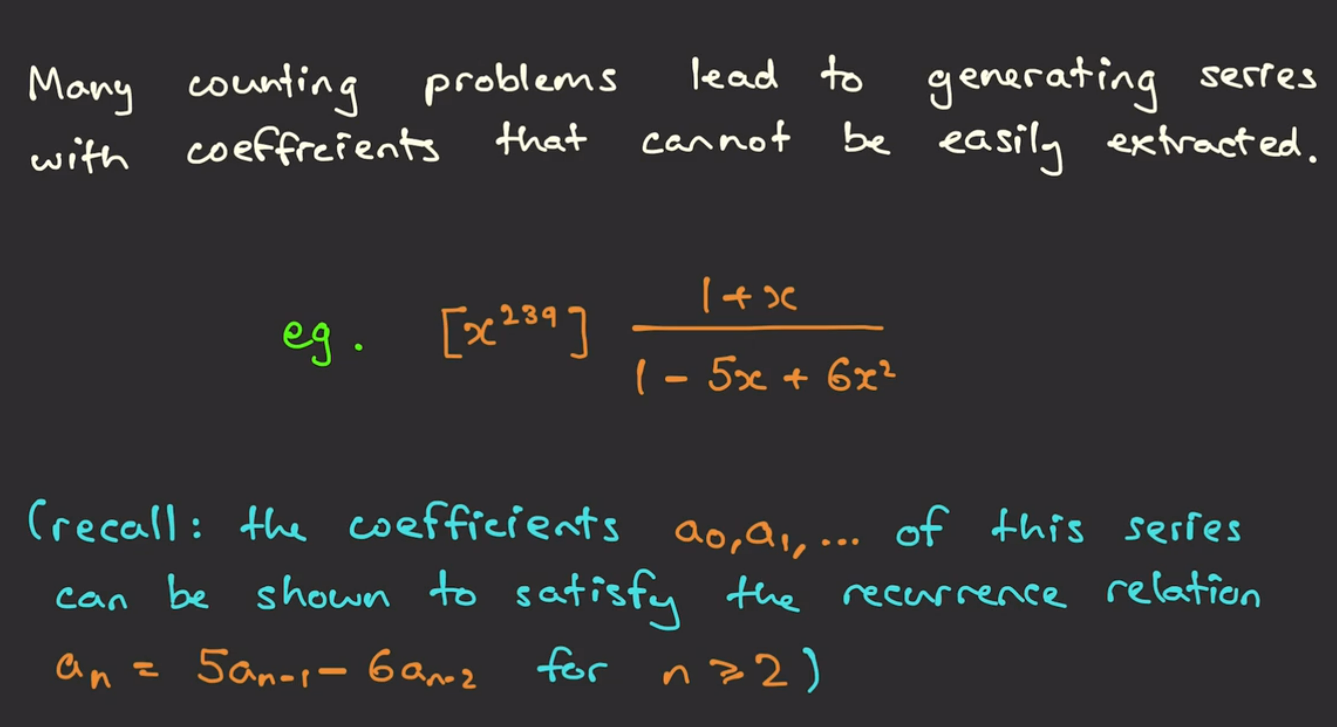 Many counting problems lead to generating series
with coefficients that cannot be easily extracted.
eg. [x²³⁹] (1+x)/(1 - 5x + 6x²)
(recall: the coefficients a₀,a₁,... of this series
can be shown to satisfy the recurrence relation
aₙ = 5aₙ₋₁ - 6aₙ₋₂ for n ⩾ 2)